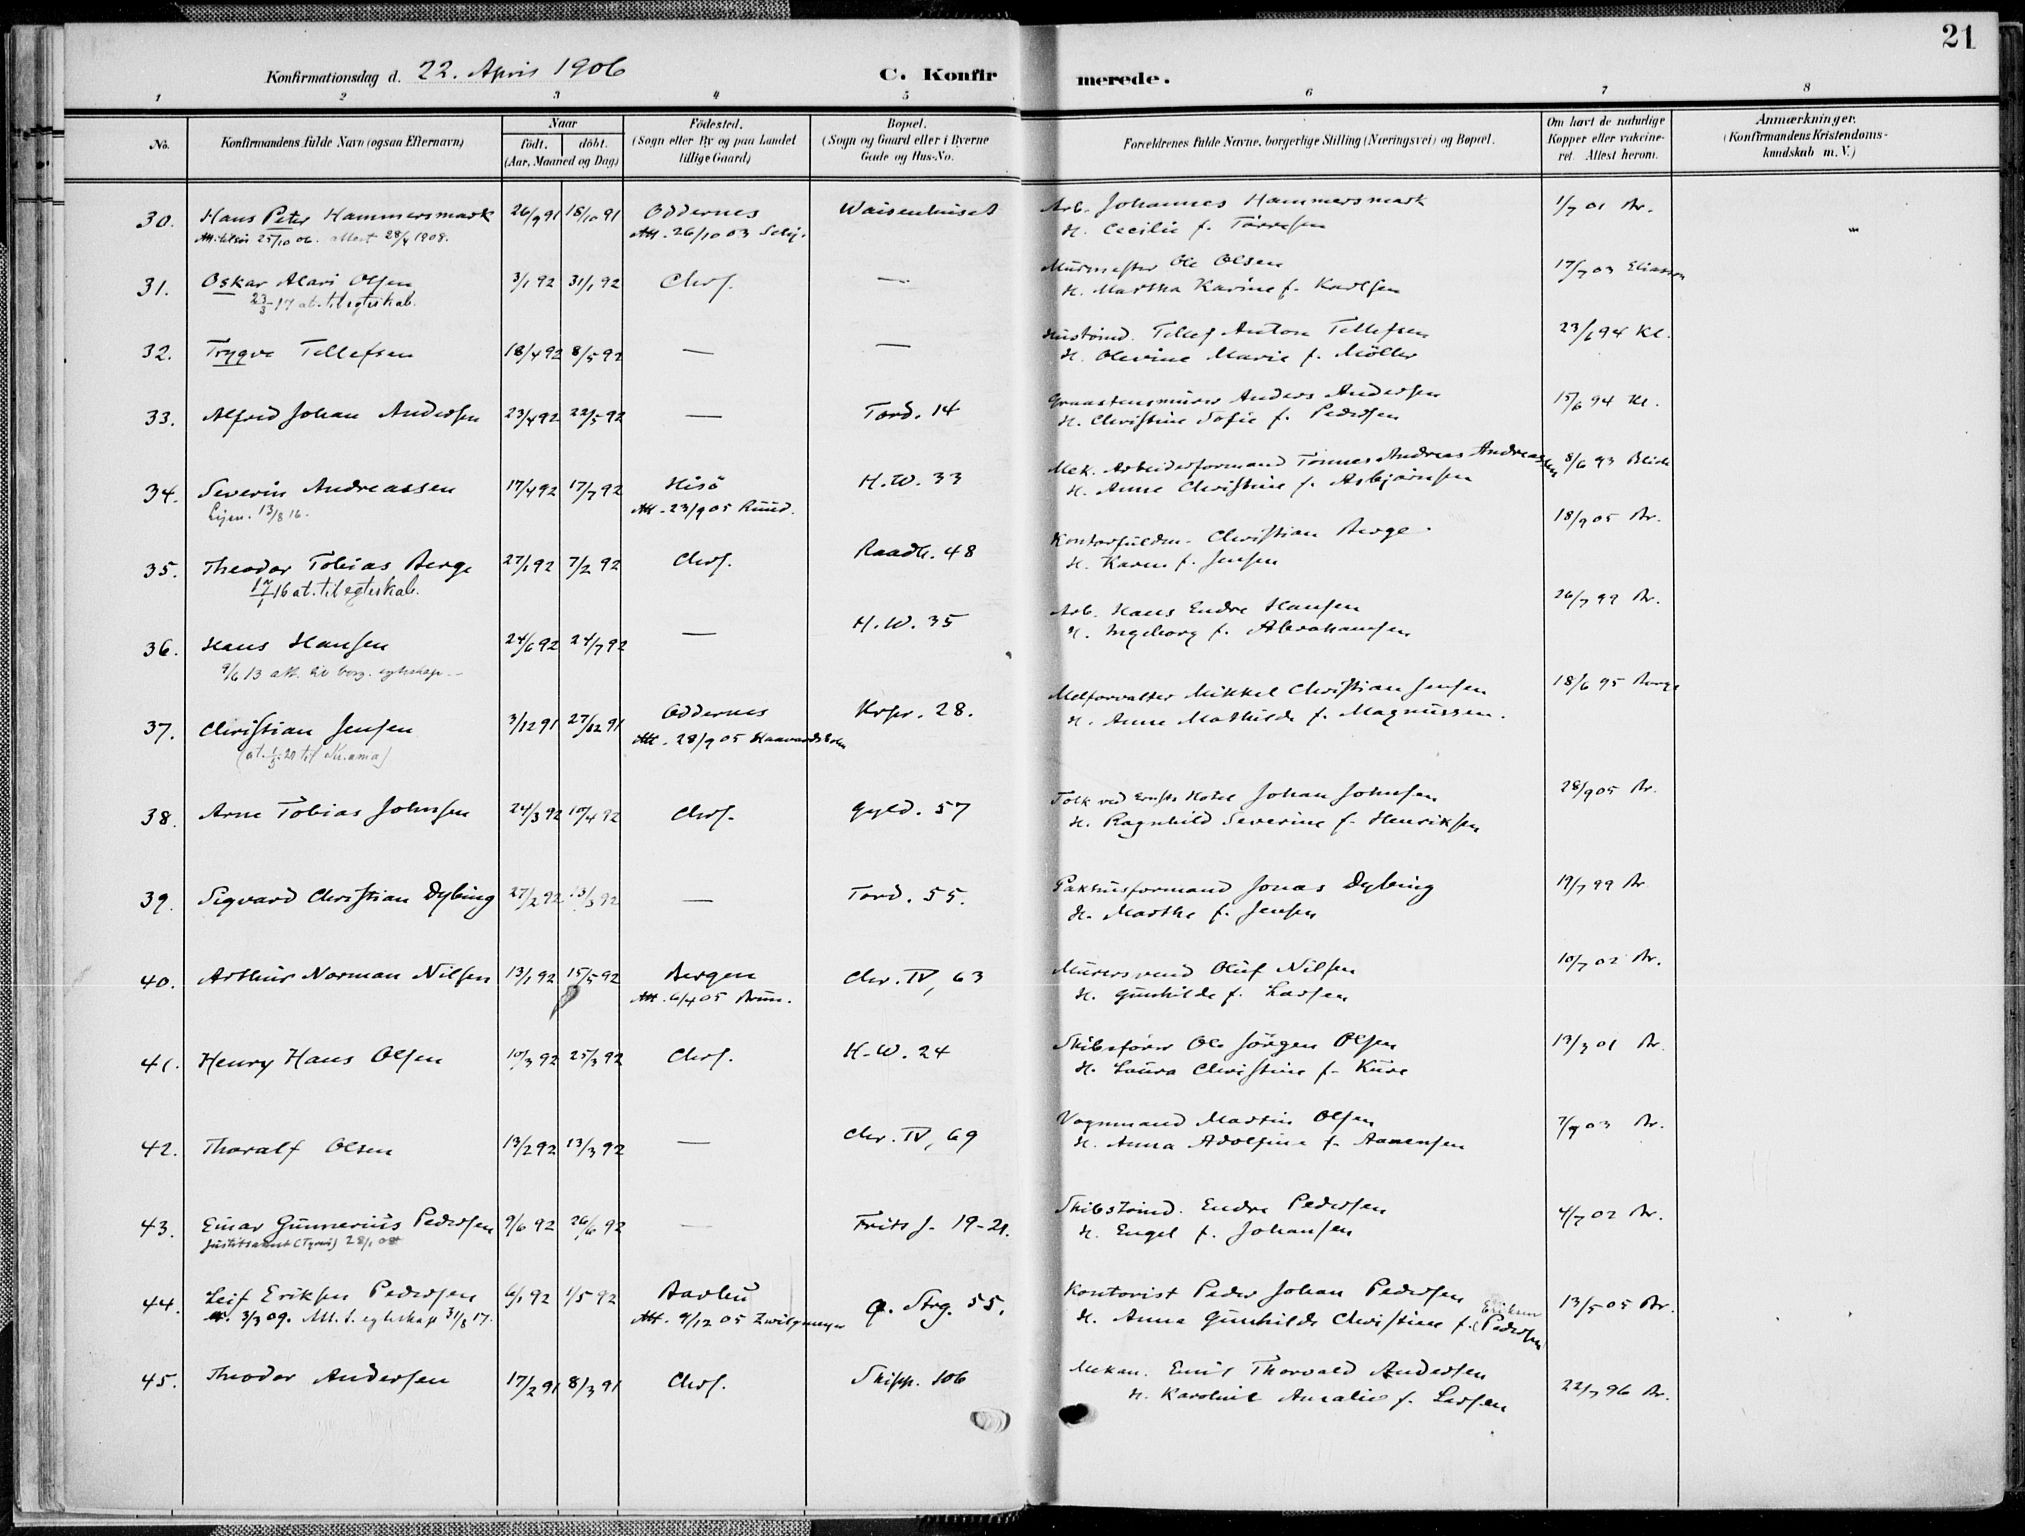 21
Konfirmationsdag d. 22. April 1906 C. Konfirmerede.
1 2 3 4 5 6 7 8
No. Konfirmandens fulde Navn (ogsaa Efternavn) Naar født. døbt. (Aar, Maaned og Dag) Fødested. (Sogn eller By og paa Landet tillige Gaard) Bopæl. (Sogn og Gaard eller i Byerne Gade og Hus-No. Forældrenes fulde Navne, borgerlige Stilling (Næringsvei) og Bopæl. Om havt de naturlige Kopper eller vakcineret. Attest herom. Anmærkninger. (Konfirmandens Kristendomskundskab m. V.)
30. Hans Peter Hammersmark 26/9 91 18/10 91 Oddernes Waisenhuset Arb. Johannes Hammersmark 1/7 01 Br.
25/10 06. attest 28/4 1908. Att. 26/10 03 H. Cecilie f. Tørresen
31. Oskar Alari Olsen 3/1 92 31/1 92 Chrs. — Murmester Ole Olsen 17/7 03 Eliassen
23/3 17 at. til egteskab. H. Martha Karine f. Karlsen
32. Trygve Tellefsen 18/4 92 8/5 92 — — Hustømd. Tellef Anton Tellefsen 23/6 94 Kl.
H. Olevine Marie f. Møller
33. Alfred Johan Andersen 23/4 92 22/5 92 — Tord. 14 Graastensmurer Anders Andersen 15/6 94 Kl.
H. Christine Sofie f. Pedersen
34. Severin Andreassen 17/4 92 17/7 92 Hisø H. W. 33 Mek. Arbeiderformand Tønnes Andreas Andreassen 8/6 93
13/8 16. Att. 23/9 05 Ruud. H. Anne Christine f. Asbjørnsen
35. Theodor Tobias Berge 27/1 92 7/2 92 Chrs. Raadh. 48 Kontorfuldm. Christian Berge 18/9 05 Br.
17/1 16 at. til egteskab. H. Karen f. Jensen
36. Hans Hansen 24/6 92 24/7 92 — H. W. 35 Arb. Hans Endre Hansen 26/7 99 Br.
9/6 13 att. til borg. egteskap H. Ingeborg f. Abrahamsen
37. Christian Jensen 3/12 91 27/12 91 Oddernes Krpr. 28. Melforvalter Mikkel Christian Jensen 18/6 95 Borge
(at. 1/5 20 til Kr.ama) Att. 28/9 05 H. Anne Mathilde f. Magnussen.
38. Arne Tobias Johnsen 24/3 92 10/4 92 Chrs. Gyld. 57 Tolk ved Ernsts Hotel Johan Johnsen 28/9 05 Br.
H. Ragnhild Severine f. Henriksen
39. Sigvard Christian Dybing 27/2 92 13/3 92 — Tord. 55. Pakhusformand Jonas Dybing 19/7 99 Br
H. Marthe f. Jensen
40. Arthur Norman Nilsen 13/1 92 15/5 92 Bergen Chr. IV, 63 Murersvend Oluf Nilsen 10/7 02 Br.
Att. 6/4 05 H. Gunhilde f. Larsen
41. Henry Hans Olsen 10/3 92 25/3 92 Chrs. H. W. 24 Skibsfører Ole Jörgen Olsen 13/7 01 Br.
H. Laura Christine f. Kure
42. Thoralf Olsen 13/2 92 13/3 92 — Chr. IV, 69 Vognmand Martin Olsen 7/9 03 Br.
H. Anna Adolfine f. Aanensen
43. Einar Gunnerius Pedersen 9/6 92 26/6 92 — Frits J. 19-21. Skibstømd. Endre Pedersen 4/7 02 Br.
28/1 08 H. Engel f. Johansen
44. Leif Eriksen Pedersen 6/1 92 1/5 92 Aarhu Ø. Strg. 55. Kontorist Peder Johan Pedersen 13/5 05 Br.
3/3 09. Att. t. egteskap 31/8 17. Att. 9/12 05 H. Anna Gunhilde Christine f. (Eriksen Pedersen)
45. Theodor Andersen 17/2 91 8/3 91 Chrs. Skipp. 106 Mekan. Emil Thorvald Andersen 22/7 96 Br.
H. Karoline Amalie f. Larsen